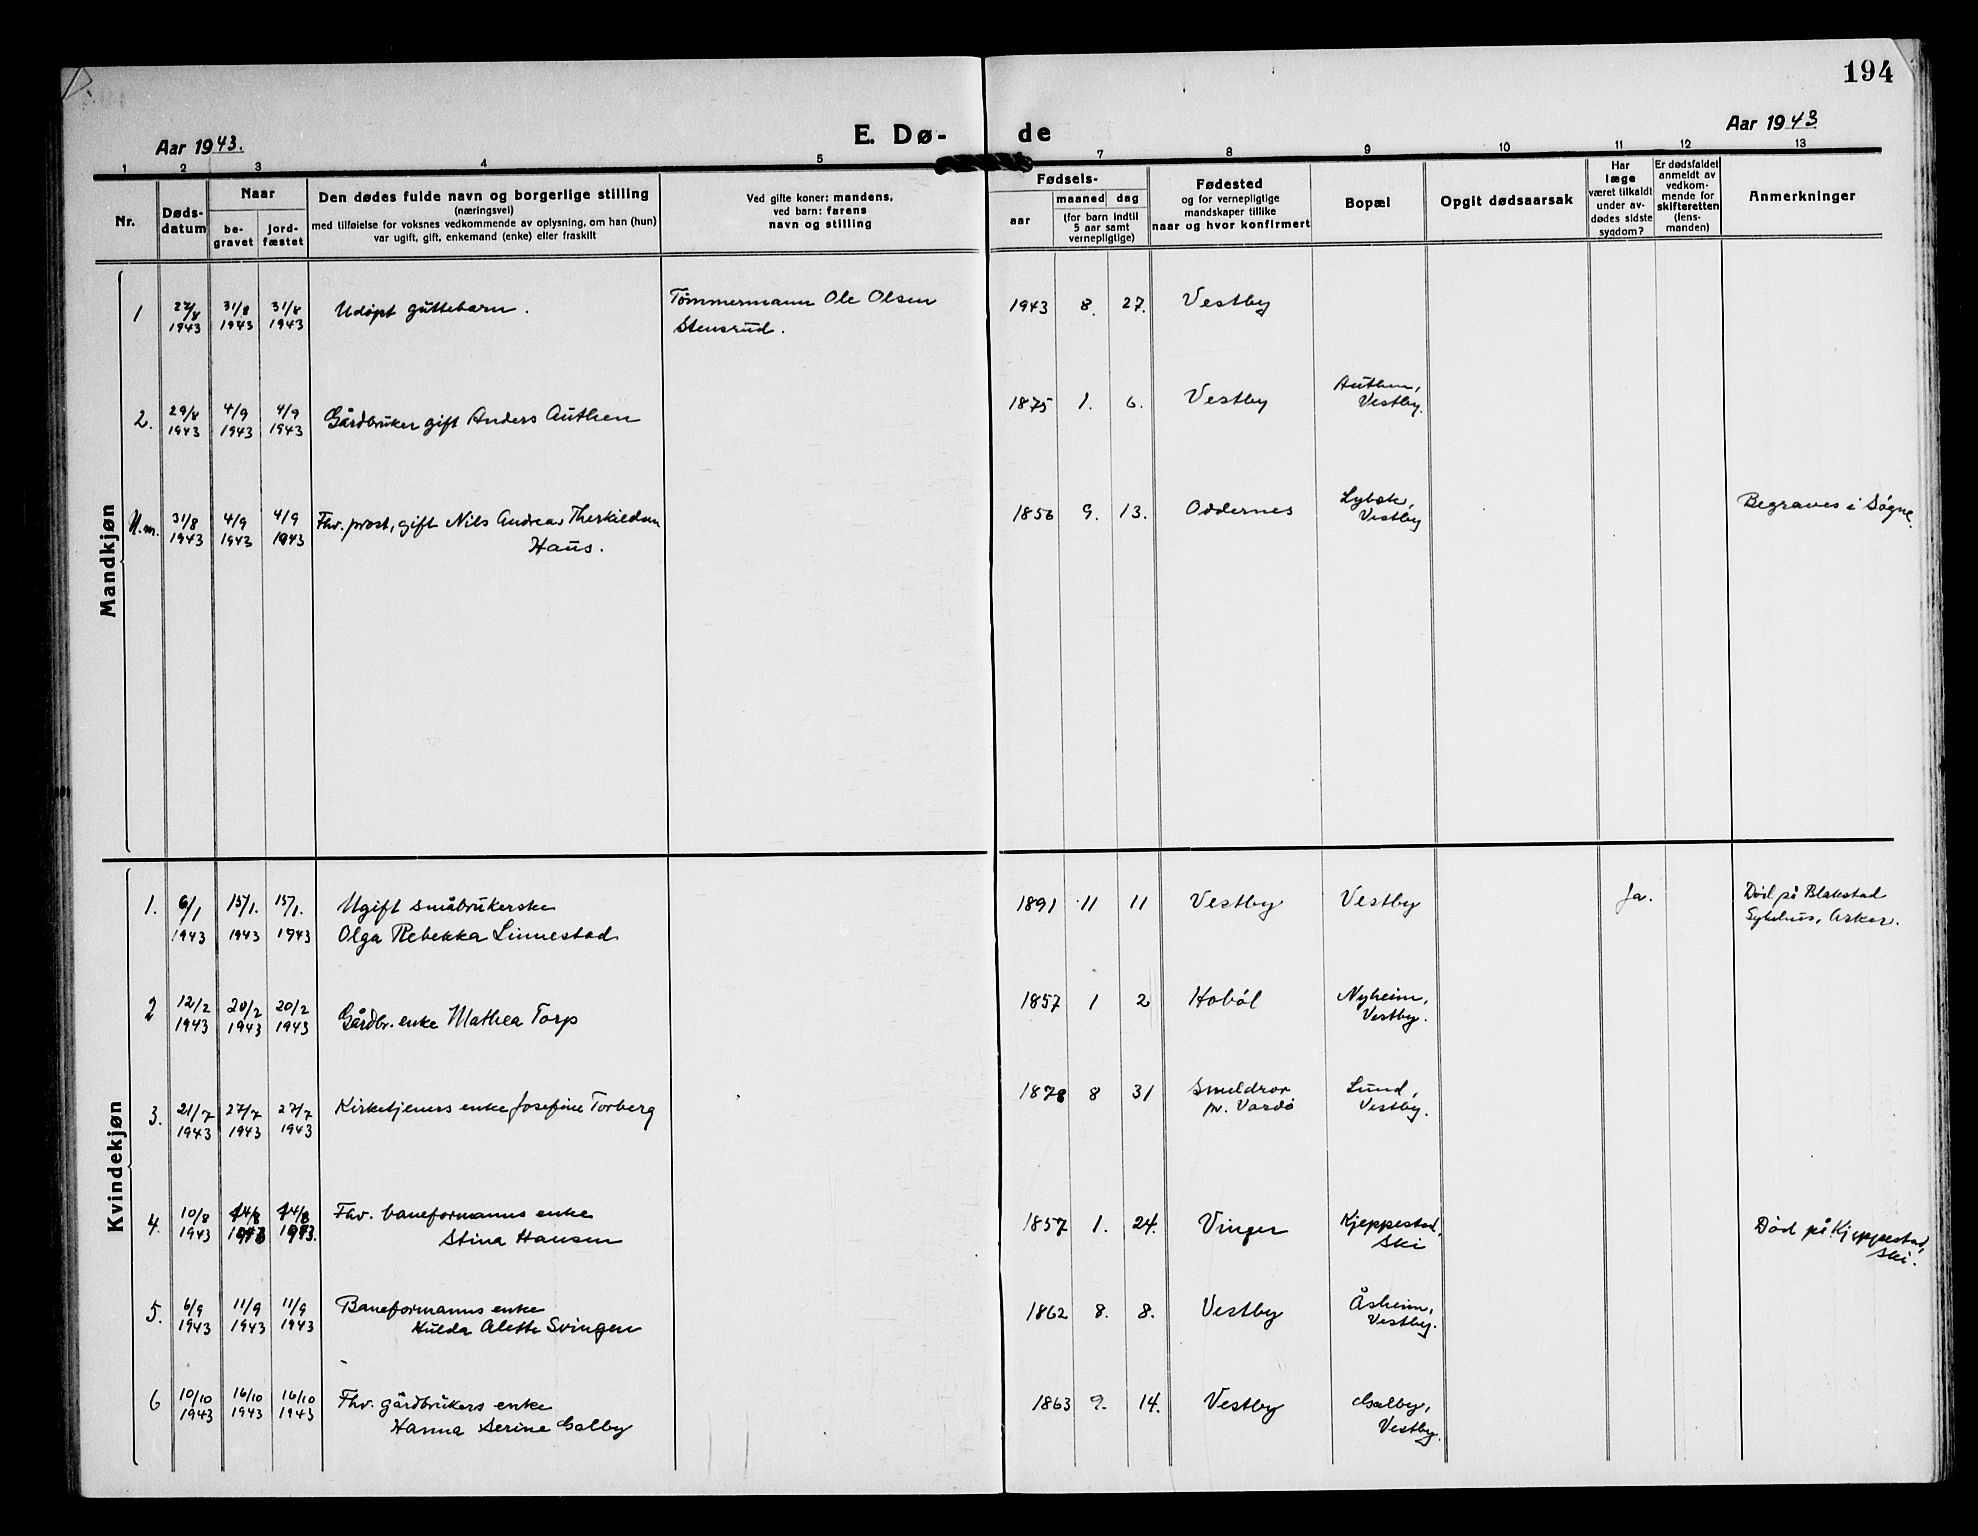 194
Aar 1943.
E. Dø-
de
Aar 1943
1 2 3 4 5 7 8 9 10 11 12 13
Nr.
Døds-
datum
Naar
be-
gravet
jord-
fæstet
Den dødes fulde navn og borgerlige stilling
(næringsvei)
med tilføielse for voksnes vedkommende av oplysning, om han (hun)
var ugift, gift, enkemand (enke) eller fraskilt
Ved gifte koner: mandens,
ved barn: farens
navn og stilling
Fødsels-
aar
maaned dag
(for barn indtil
5 aar samt
vernepligtige)
Fødested
og for vernepligtige
mandskaper tillike
naar og hvor konfirmert
Bopæl
Opgit dødsaarsak
Har
læge
været tilkaldt
under av-
dødes sidste
sygdom?
Er dødsfaldet
anmeldt av
vedkom-
mende for
skifteretten
(lens-
manden)
Anmerkninger
Mandkjøn
1 27/8 31/8 31/8 Udøpt guttebarn. Tømmermann Ole Olsen 1943 8. 27. Vestby
1943 1943 1943 Stensrud.
2. 29/8 4/9 4/9 Gårdbruker gift Anders Authen 1875 1. 6. Vestby Authen,
1943 1943 1943 Vestby.
U.m. 31/8 4/9 4/9 Fhv. prost, gift Nils Andreas Therkildsen 1856 9. 13. Oddernes Vestby Begraves i Søgne.
1943 1943 1943 Haus.
Kvindekjøn
1. 6/1 15/1. 15/1. Ugift småbrukerske 1891 11 11 Vestby Vestby Ja. Død på Blakstad
1943 1943 1943 Olga Rebekka Linnestad Sykehus, Asker.
2 12/2 20/2 20/2 Gårdbr. enke Mathea Torp 1857 1 2 Hobøl Nyheim,
1943 1943 1943 Vestby.
3. 21/7 27/7 27/7 Kirketjeners enke Josefine Torberg 1878 8 31 Smeldror Lund,
1943 1943 1943 pr. Vardø Vestby.
4. 10/8 14/8 14/8 Fhv. baneformanns enke 1857 1. 24. Vinger Kjeppestad, Død på Kjeppestad,
1943 1943 1943. Stina Hansen Ski Ski.
5. 6/9 11/9 11/9 Baneformanns enke 1862 8. 8. Vestby Åsheim,
1943 1943 1943 Hulda Alette Svingen Vestby.
6 10/10 16/10 16/10 Fhv. gårdbrukers enke 1863 9. 14. Vestby Galby,
1943 1943 1943 Hanna Serine Galby Vestby.